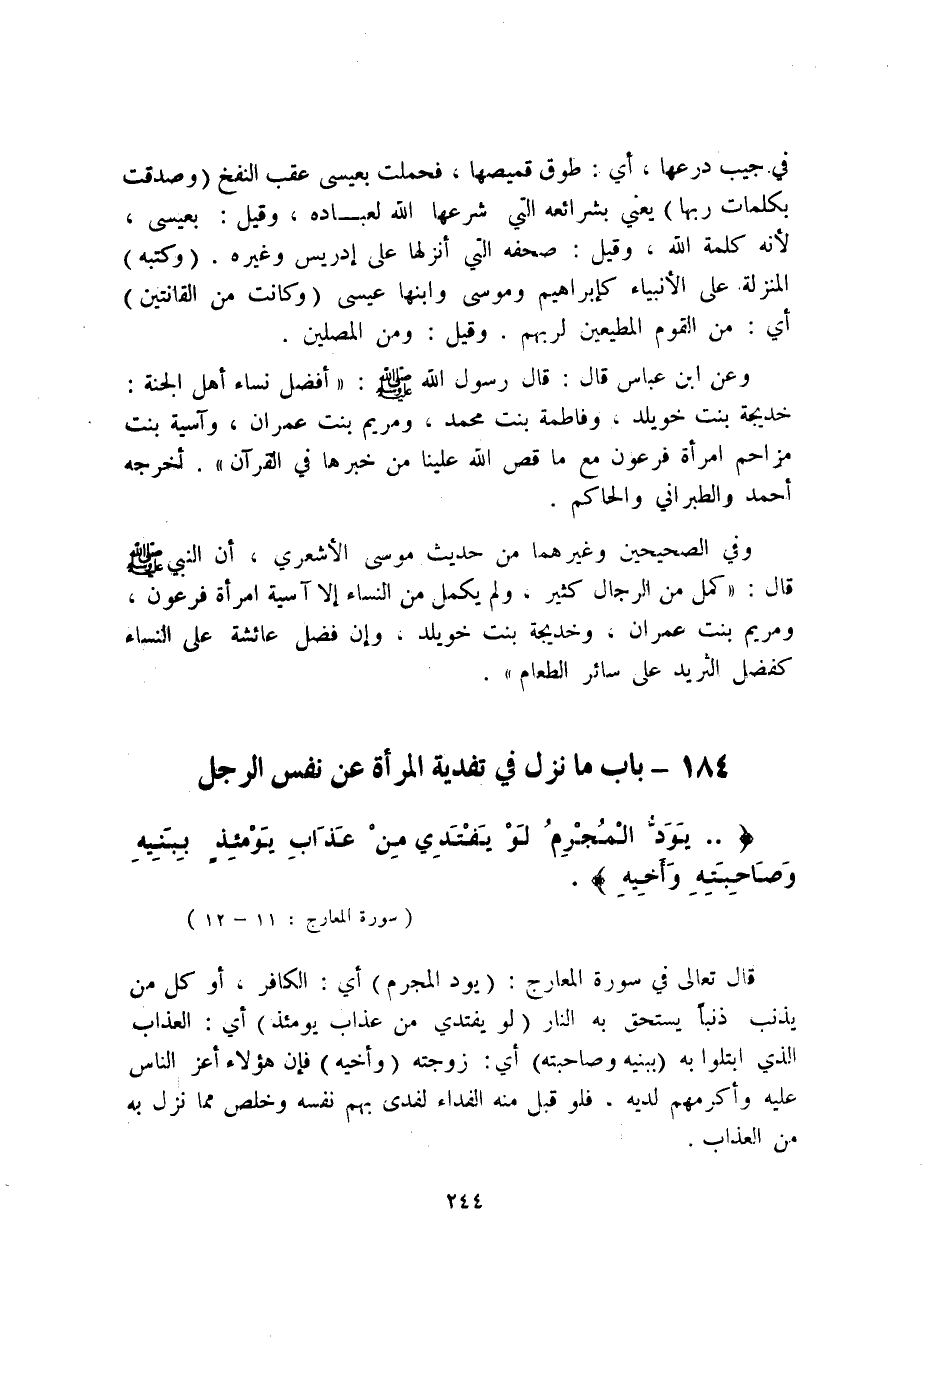 في جيب درعها ، أي : طوق قميصها ، فحملت بعيسى عقب النفخ ( وصدقت
بكلمات ربها ) يعني بشرائعه التي شرعها الله لعبـــاده ، وقيل : بعيسى ،
لأنه كلمة الله ، وقيل : صحفه التي أنزلها على إدريس وغيره . ( وكتبه )
المنزلة على الأنبياء كإبراهيم وموسى وابنها عيسى ( وكانت من القانتين )
أي : من القوم المطيعين لربهم . وقيل : ومن المصلين .
وعن ابن عباس قال : قال رسول الله ﷺ : « أفضل نساء أهل الجنة :
خديجة بنت خويلد ، وفاطمة بنت محمد ، ومريم بنت عمران ، وآسية بنت
مزاحم امرأة فرعون مع ما قص الله علينا من خبرها في القرآن » . أخرجه
أحمد والطبراني والحاكم .
وفي الصحيحين وغيرهما من حديث موسى الأشعري ، أن النبي ﷺ
قال : « كمل من الرجال كثير ، ولم يكمل من النساء إلا آسية امرأة فرعون ،
ومريم بنت عمران ، وخديجة بنت خويلد ، وإن فضل عائشة على النساء
كفضل الثريد على سائر الطعام » .
١٨٤ – باب ما نزل في تفدية المرأة عن نفس الرجل
﴿ .. يَوَدُّ الْمُجْرِمُ لَوْ يَفْتَدِي مِنْ عَذَابِ يَوْمَئِذٍ بِبَنِيهِ
وَصَاحِبَتِهِ وَأَخِيهِ ﴾ .
( سورة المعارج : ١١ – ١٢ )
قال تعالى في سورة المعارج : ( يود المجرم ) أي : الكافر ، أو كل من
يذنب ذنباً يستحق به النار ( لو يفتدي من عذاب يومئذ ) أي : العذاب
الذي ابتلوا به ( ببنيه وصاحبته ) أي : زوجته ( وأخيه ) فإن هؤلاء أعز الناس
عليه وأكرمهم لديه . فلو قبل منه الفداء لفدى بهم نفسه وخلص مما نزل به
من العذاب .
٢٤٤